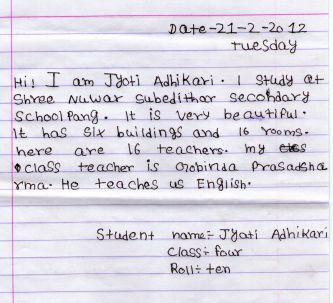 Date-21-2-2012
Tuesday
Hi! I am Jyoti Adhikari. I study at
Shree Nuwar subedithar secondary
School Pang. It is very beautiful.
It has six buildings and 16 rooms.
here are 16 teachers. my
class teacher is Gobinda Prasadsha
rma. He teaches us English.
Student name:- Jyoti Adhikari
Class:- four
Roll:- ten